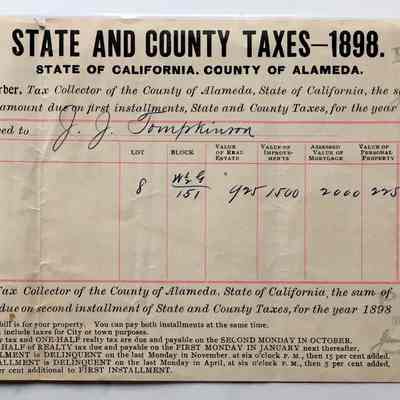 STATE AND COUNTY TAXES—1898.
STATE OF CALIFORNIA. COUNTY OF ALAMEDA.
rber, Tax Collector of the County of Alameda, State of California, the su
amount due on first installments, State and County Taxes, for the year
ed to J. J. Tompkinson
LOT BLOCK VALUE OF REAL ESTATE VALUE OF IMPROVE-MENTS ASSESSED VALUE OF MORTGAGE VALUE OF PERSONAL PROPERTY
8 151 925 1500 2000 225
Tax Collector of the County of Alameda, State of California, the sum of
due on second installment of State and County Taxes, for the year 1898
bill is for your property. You can pay both installments at the same time.
include taxes for City or town purposes.
r tax and ONE-HALF realty tax are due and payable on the SECOND MONDAY IN OCTOBER.
HALF of REALTY tax due and payable on the FIRST MONDAY IN JANUARY next thereafter.
LLMENT is DELINQUENT on the last Monday in November, at six o'clock P. M., then 15 per cent added.
ALLMENT is DELINQUENT on the last Monday in April, at six o'clock P. M., then 5 per cent added,
er cent additional to FIRST INSTALLMENT.